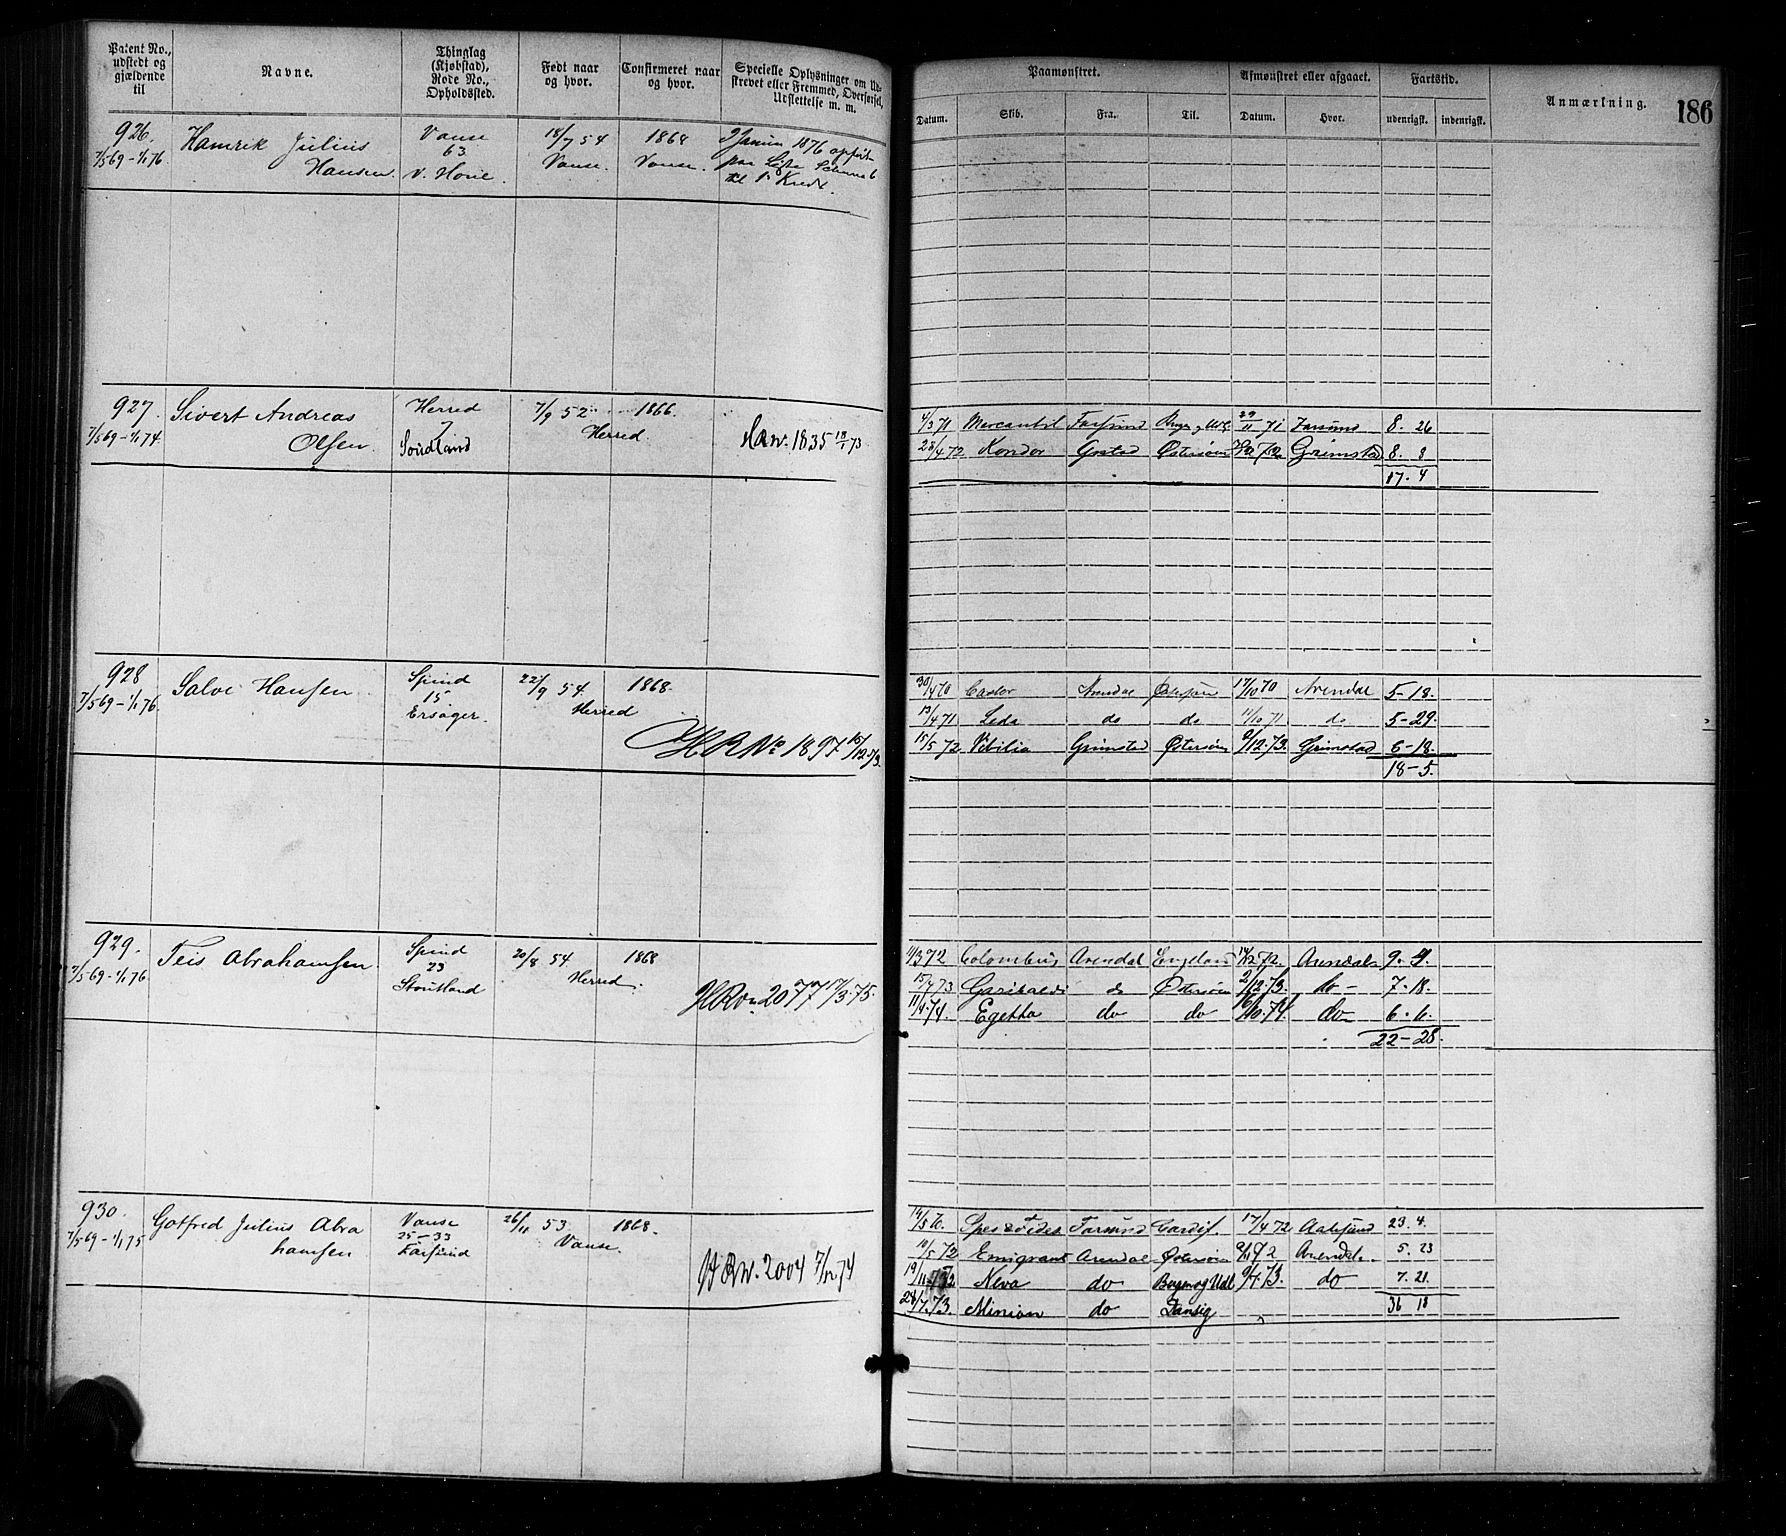 Patent No.,
udstedt og
gjældende
til
Navne.
Thinglag
(Kjøbstad),
Rode No.,
Opholdssted.
Født naar
og hvor.
Confirmeret naar
og hvor.
Specielle Oplysninger om Ud-
skrevet eller Fremmed, Overførsel,
Udslettelse m. m.
Paamønstret.
Datum.
Skib.
Fra.
Til.
Afmønstret eller afgaaet.
Datum.
Hvor.
Fartstid.
udenrigsk.
indenrigsk.
Anmærkning.
186
926
7/5 69 - 1/1 76.
Hamrik Julius
Hansen.
Vanse
63
V. Hovie.
18/7 54
Vanse.
1868
Vanse.
Januar 1876 opført
paa
til
927.
7/5 69 - 1/1 74.
Sivert Andreas
Olsen.
Herred
7
Soudland
7/9 52
Herred.
1866.
1835 18/1 73
4/3 71 Mercantil Farsund 29/11 71 Farsund 8. 26
23/4 72 Kondor Grstad Østersøen Grimstad 8. 8
17. 4
928
7/5 69 - 1/1 76.
Salve Hansen
Spind
15
Ersager.
22/9 54.
Herred
1868.
H R No 1897 15/12 73.
30/4 70 Castor Arendal Østersøen 17/10 70 Arendal 5-18.
13/4 71 Leda do do 11/10 71 do 5-29.
15/5 72 Vibilia Grimstad Østersøen 2/12 73. Grimstad 6-18.
18-5.
929.
7/5 69 - 1/1 76.
Teis Abrahamsen
Spind
23
Stoutland
20/8 54
Herred.
1868
2077 17/3 75.
11/3 72 Colombus Arendal England 14/12 72. Arendal 9. 4.
15/4 73 Garibaldi do Østersøen 2/12 73. do - 7-18.
11/4 74. Egetha do do 16/10 74. do 6. 6.
22-28.
930.
7/5 69 - 1/1 75
Gotfred Julius Abra
hamsen
Vanse
25-33
Farsund
26/11 53.
Vanse.
1868.
2004 7/12 74
14/5 70. Spes & Fides Farsund Cardif. 17/4 72 Aalesund 23. 4.
10/5 72 Emigrant Arendal Østersøen Arendal. 5. 23
19/11 72 Neva do Bergen og Udl 9/7 73. do 7. 21.
28/7. 73. Minion do Dansig
36 18